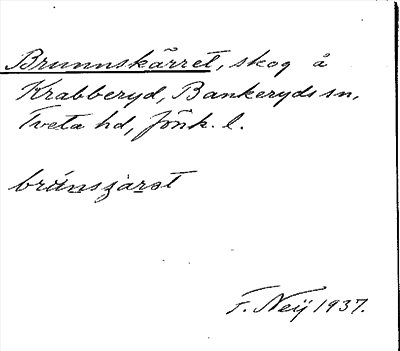 Brunnskärret, skog å
Krabberyd, Bankeryds sn,
Tveta hd, Jönk. l.
brúnsjarət
F. Neij 1937.